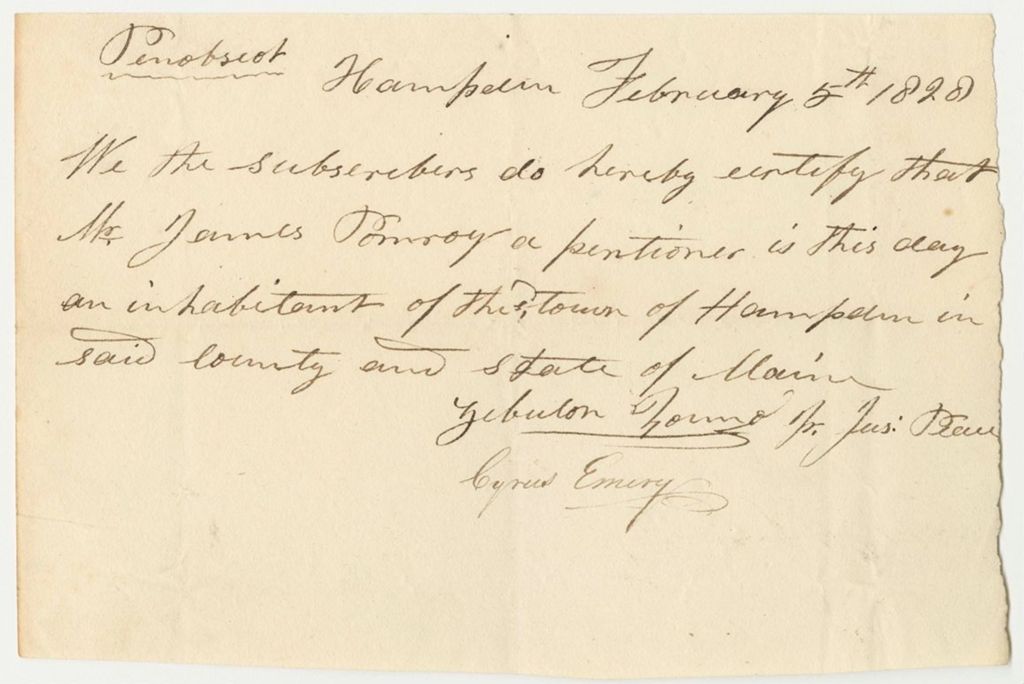 Penobscot
Hampden February 5th 1828
We the subscribers do hereby certify that
Mr. James Pomroy a pentioner is this day
an inhabitant of the sd. town of Hampden in
said County and State of Maine
Zebulon Young Jr. Jus: Peace
Cyrus Emery